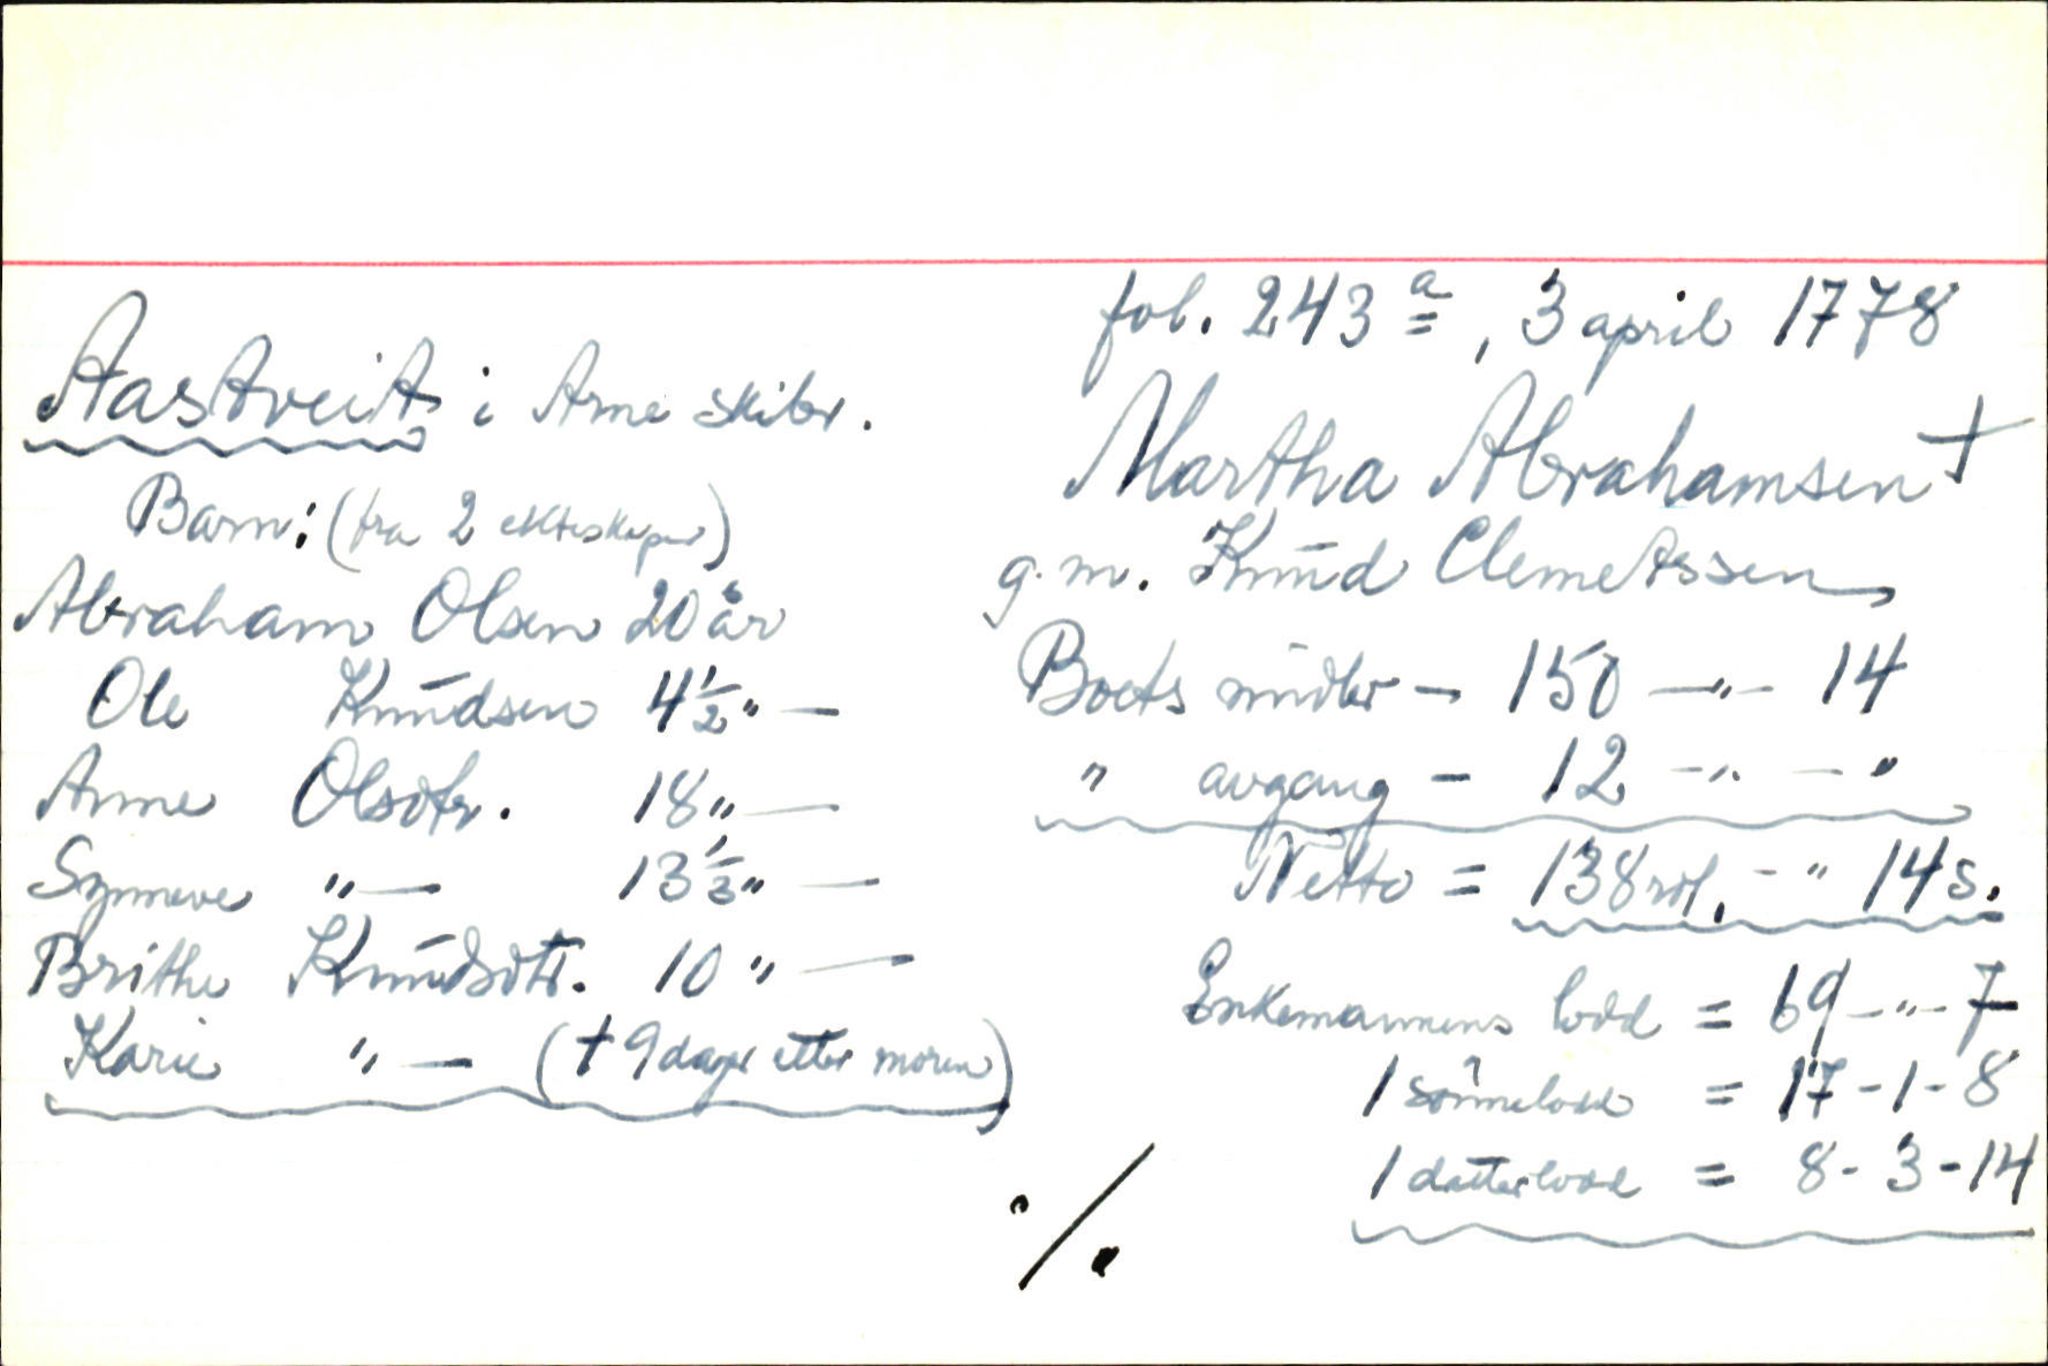 fol. 243 a, 3 april 1778
Aastveit i Arne skibr.
Martha Abrahamsen †
g.m. Knud Clemetssen
Barn: (fra 2 ekteskaper)
Abraham Olsen 20 år
Ole Knudsen 4 1/2 " —
Anne Olsdtr. 18 " —
Synneve " — 13 1/3 " —
Brithe Knudsdtr. 10 " —
Karie " — († 9 dager etter moren)
Boets midler — 150 — " — 14
" avgang — 12 — " — "
Netto = 138 rdl. - " 14 s.
Enkemannens lodd = 69 — " — 7
1 sønnelodd = 17 - 1 - 8
1 datterlodd = 8 - 3 - 14
./.